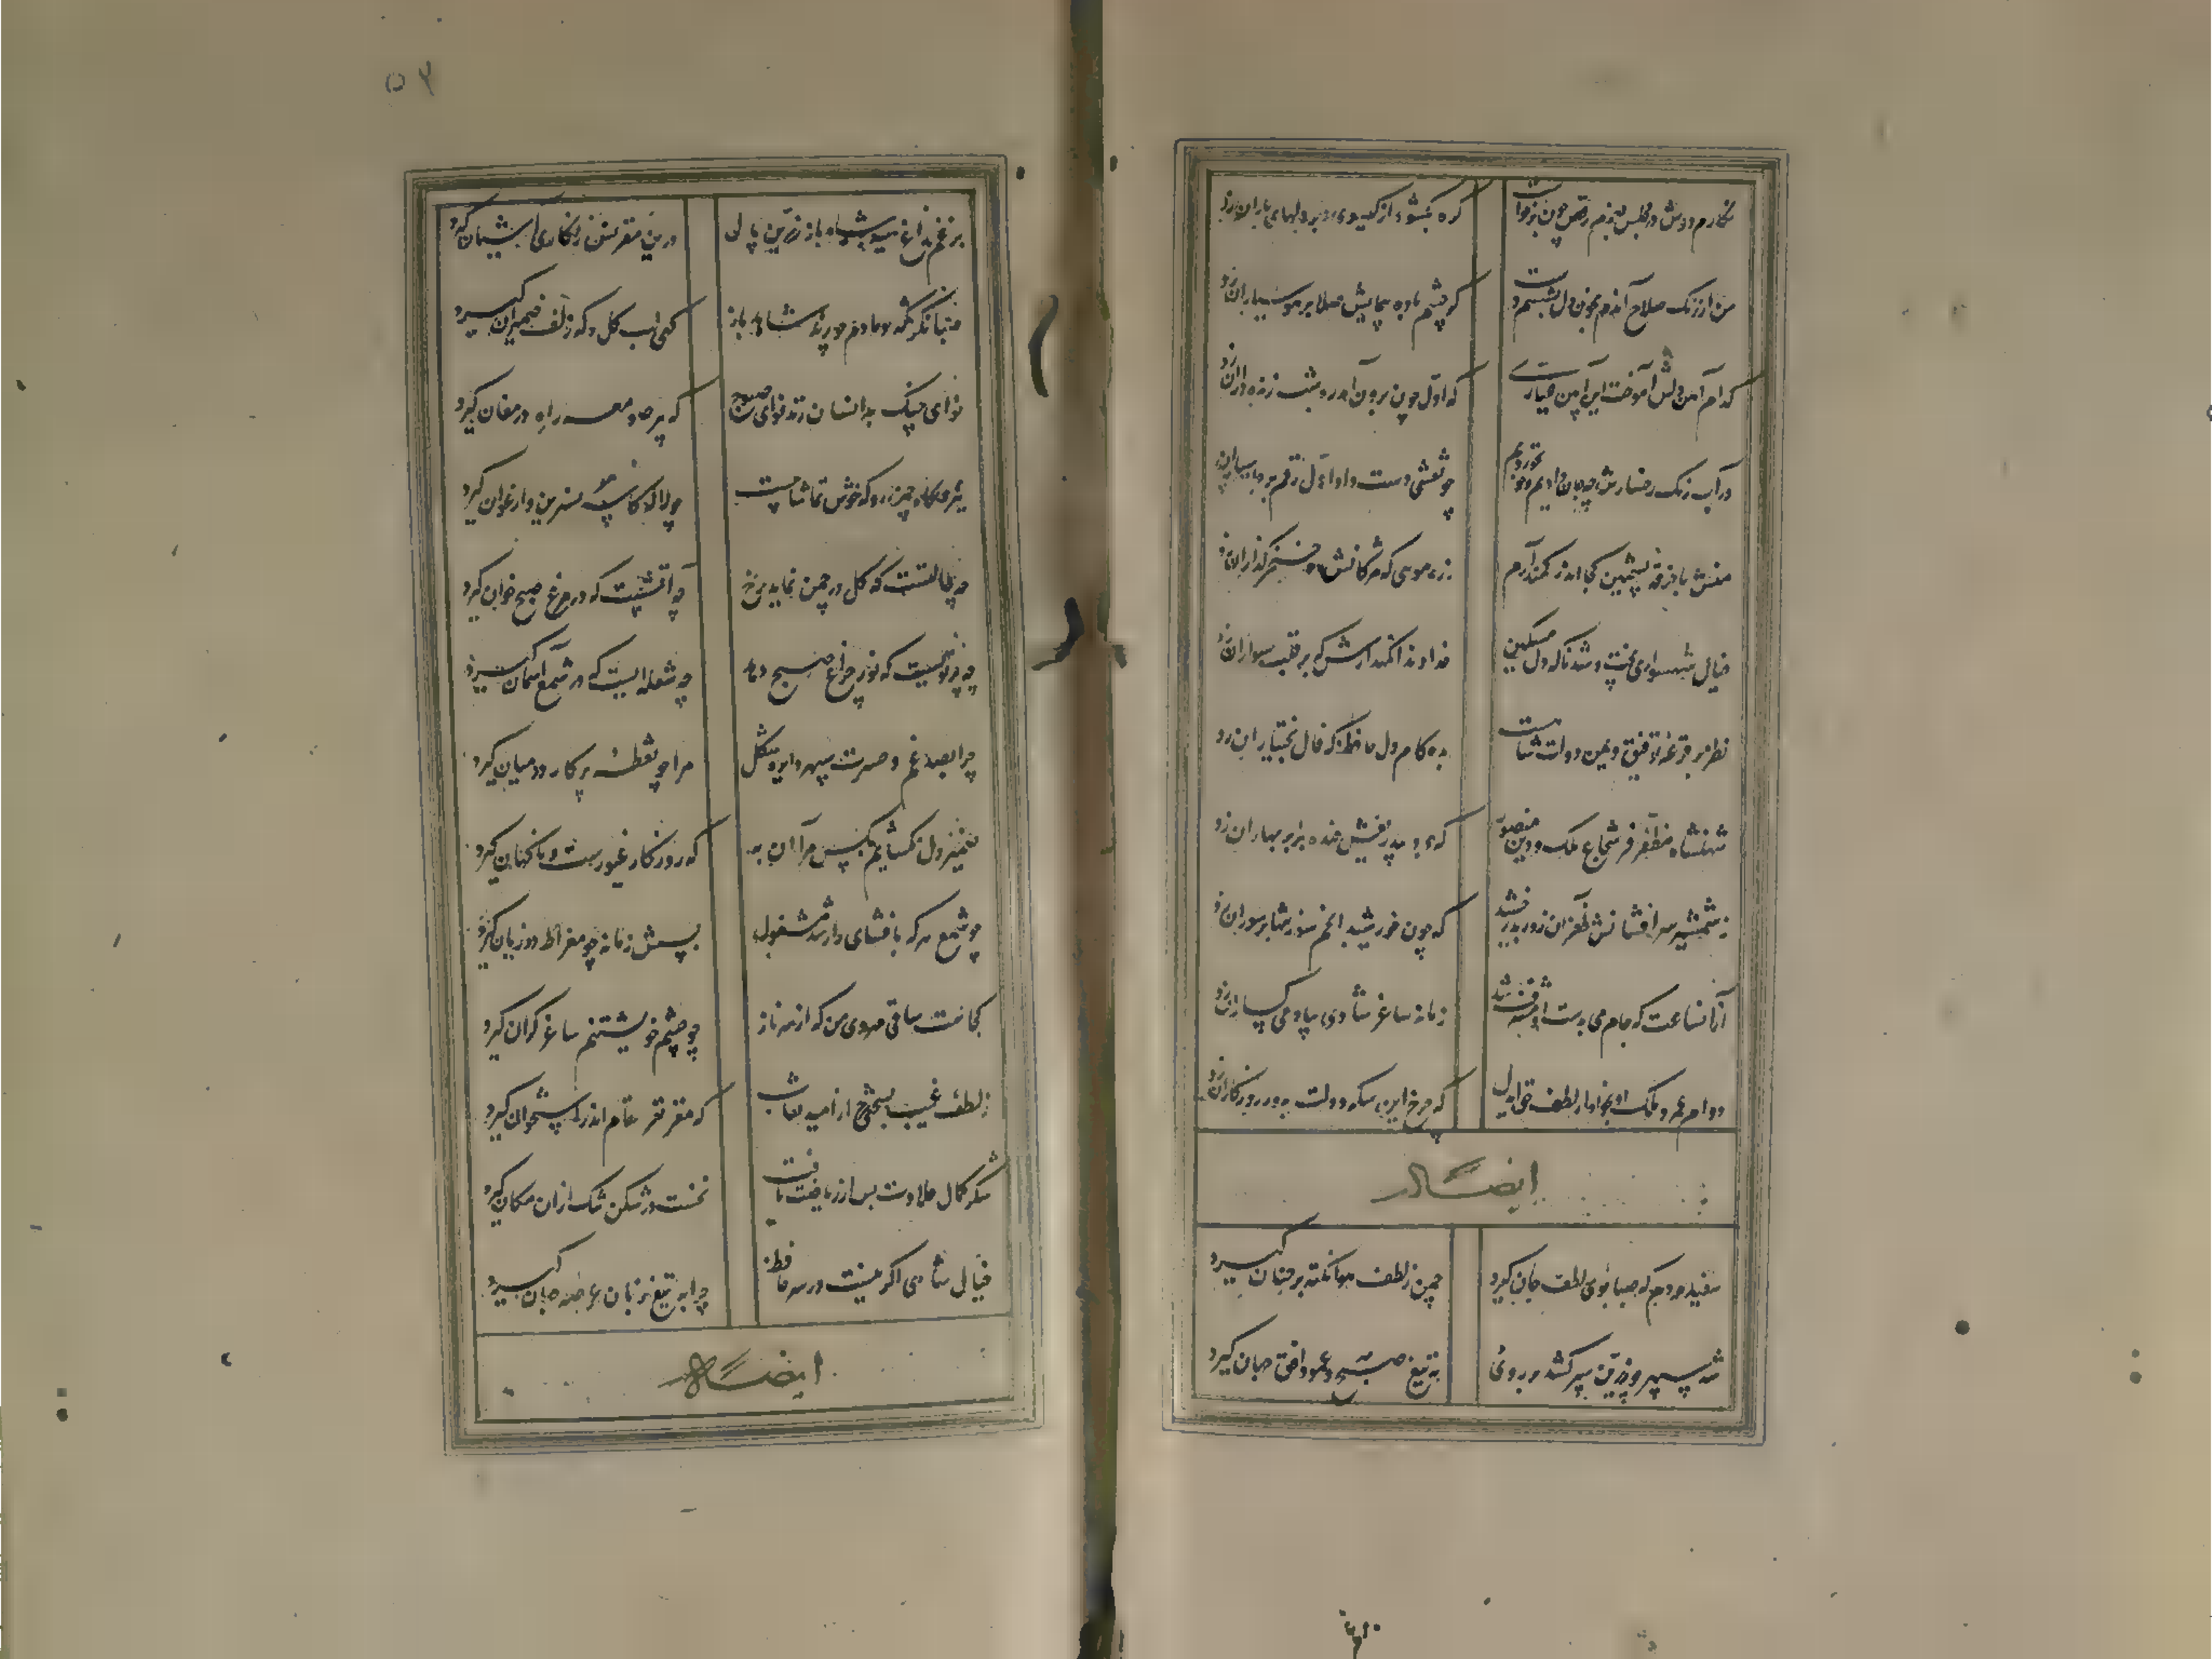 نکارم دوش در مجلس بعزم رقص چون برخواست
کره بکشود از کیسو و بر دلهای یاران زد
من از رنک صلاح آندم بخون دل بشستم دست
که چشم باده پیمایش صلا بر هوشیاران زد
کدام آهن دلش آموخت این آیین عیاری
که اول چون برون آمد ره شب زنده داران زد
در آب رنک رخسارش چه جان دادیم و خون خوردیم
چو نقشی دست داد اول رقم بر جانسپاران زد
منش با خرقه پشمین کجا اندر کمند آرم
زره مویی که مژکانش ره خنجر کذاران زد
خیال شهسواری پخت و شد ناکه دل مسکین
خداوندا نکهدارش که بر قلب سواران زد
نظر بر قرعه توفیق و یمن دولت شاهست
بده کام دل حافظ که فال بختیاران زد
شهنشاه مظفر فر شجاع ملک و دین منصور
که جود بیدریغش خنده بر ابر بهاران زد
ز شمشیر سرافشانش ظفر آن روز بدرخشید
که چون خورشید انجم سوز تنها بر سواران زد
از آنساعت که جام می بدست او مشرف شد
زمانه ساغر شادی بیاد می کساران زد
دوام عمر و ملک او بخواه از لطف حق ایدل
که چرخ این سکه دولت بدور روزکاران زد
ایضاله
سفیده دم که صبا بوی لطف جان کیرد
چمن ز لطف هوا نکته بر جنان کیرد
شه سپهر چو زرین سپر کشد در روی
به تیغ صبح و عمود افق جهان کیرد
۵۲
برغم زاغ سیه شاه باز زرین بال
درین مقرنس زنکاری آشیان کیرد
کهی لب کل و که زلف ضیمران کیرد
نوای چنک بدانسان زند نوای صبوح
که پیر صومعه راه در مغان کیرد
ببزمکاه چمن رو که خوش تماشاییست
چو لاله کاسه نسرین و ارغوان کیرد
چه حالتست که کل در چمن نماید رخ
چه آتشیست که در مرغ صبح خوان کیرد
چه پرتویست که نور چراغ صبح دهد
چه شعله ایست که در شمع آسمان کیرد
چرا بصد غم و حسرت سپهر دایره شکل
مرا چو نقطه پرکار در میان کیرد
ضمیر دل نکشایم بکس مرا آن به
که روزکار غیورست و ناکهان کیرد
چو شمع هر که بافشای راز شد مشغول
بسش زمانه چو مقراض در زبان کیرد
کجاست ساقی مهروی من که از سر ناز
چو چشم خویشتنم ساغر کران کیرد
شکر کمال حلاوت پس از ریاضت یافت
نخست در شکن تنک از آن مکان کیرد
خیال شاهی اکر نیست در سر حافظ
چرا به تیغ زبان عرصه جهان کیرد
ایضاله